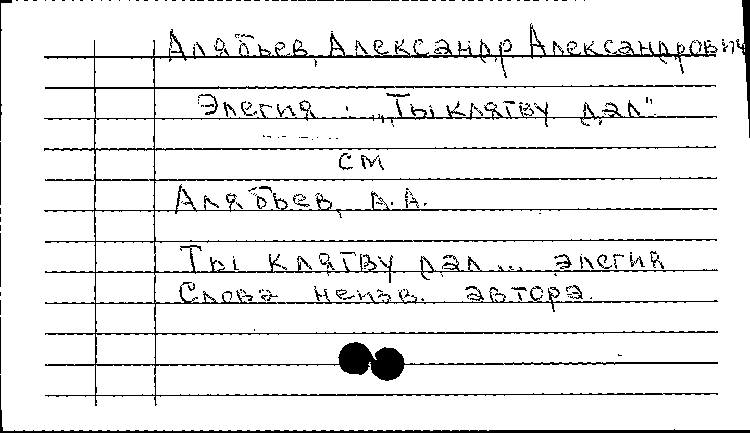 Алябьев, Александр Александрович
Элегия : „Ты клятву дал"
см
Алябьев, А.А.
Ты клятву дал... элегия
Слова неизв. автора.